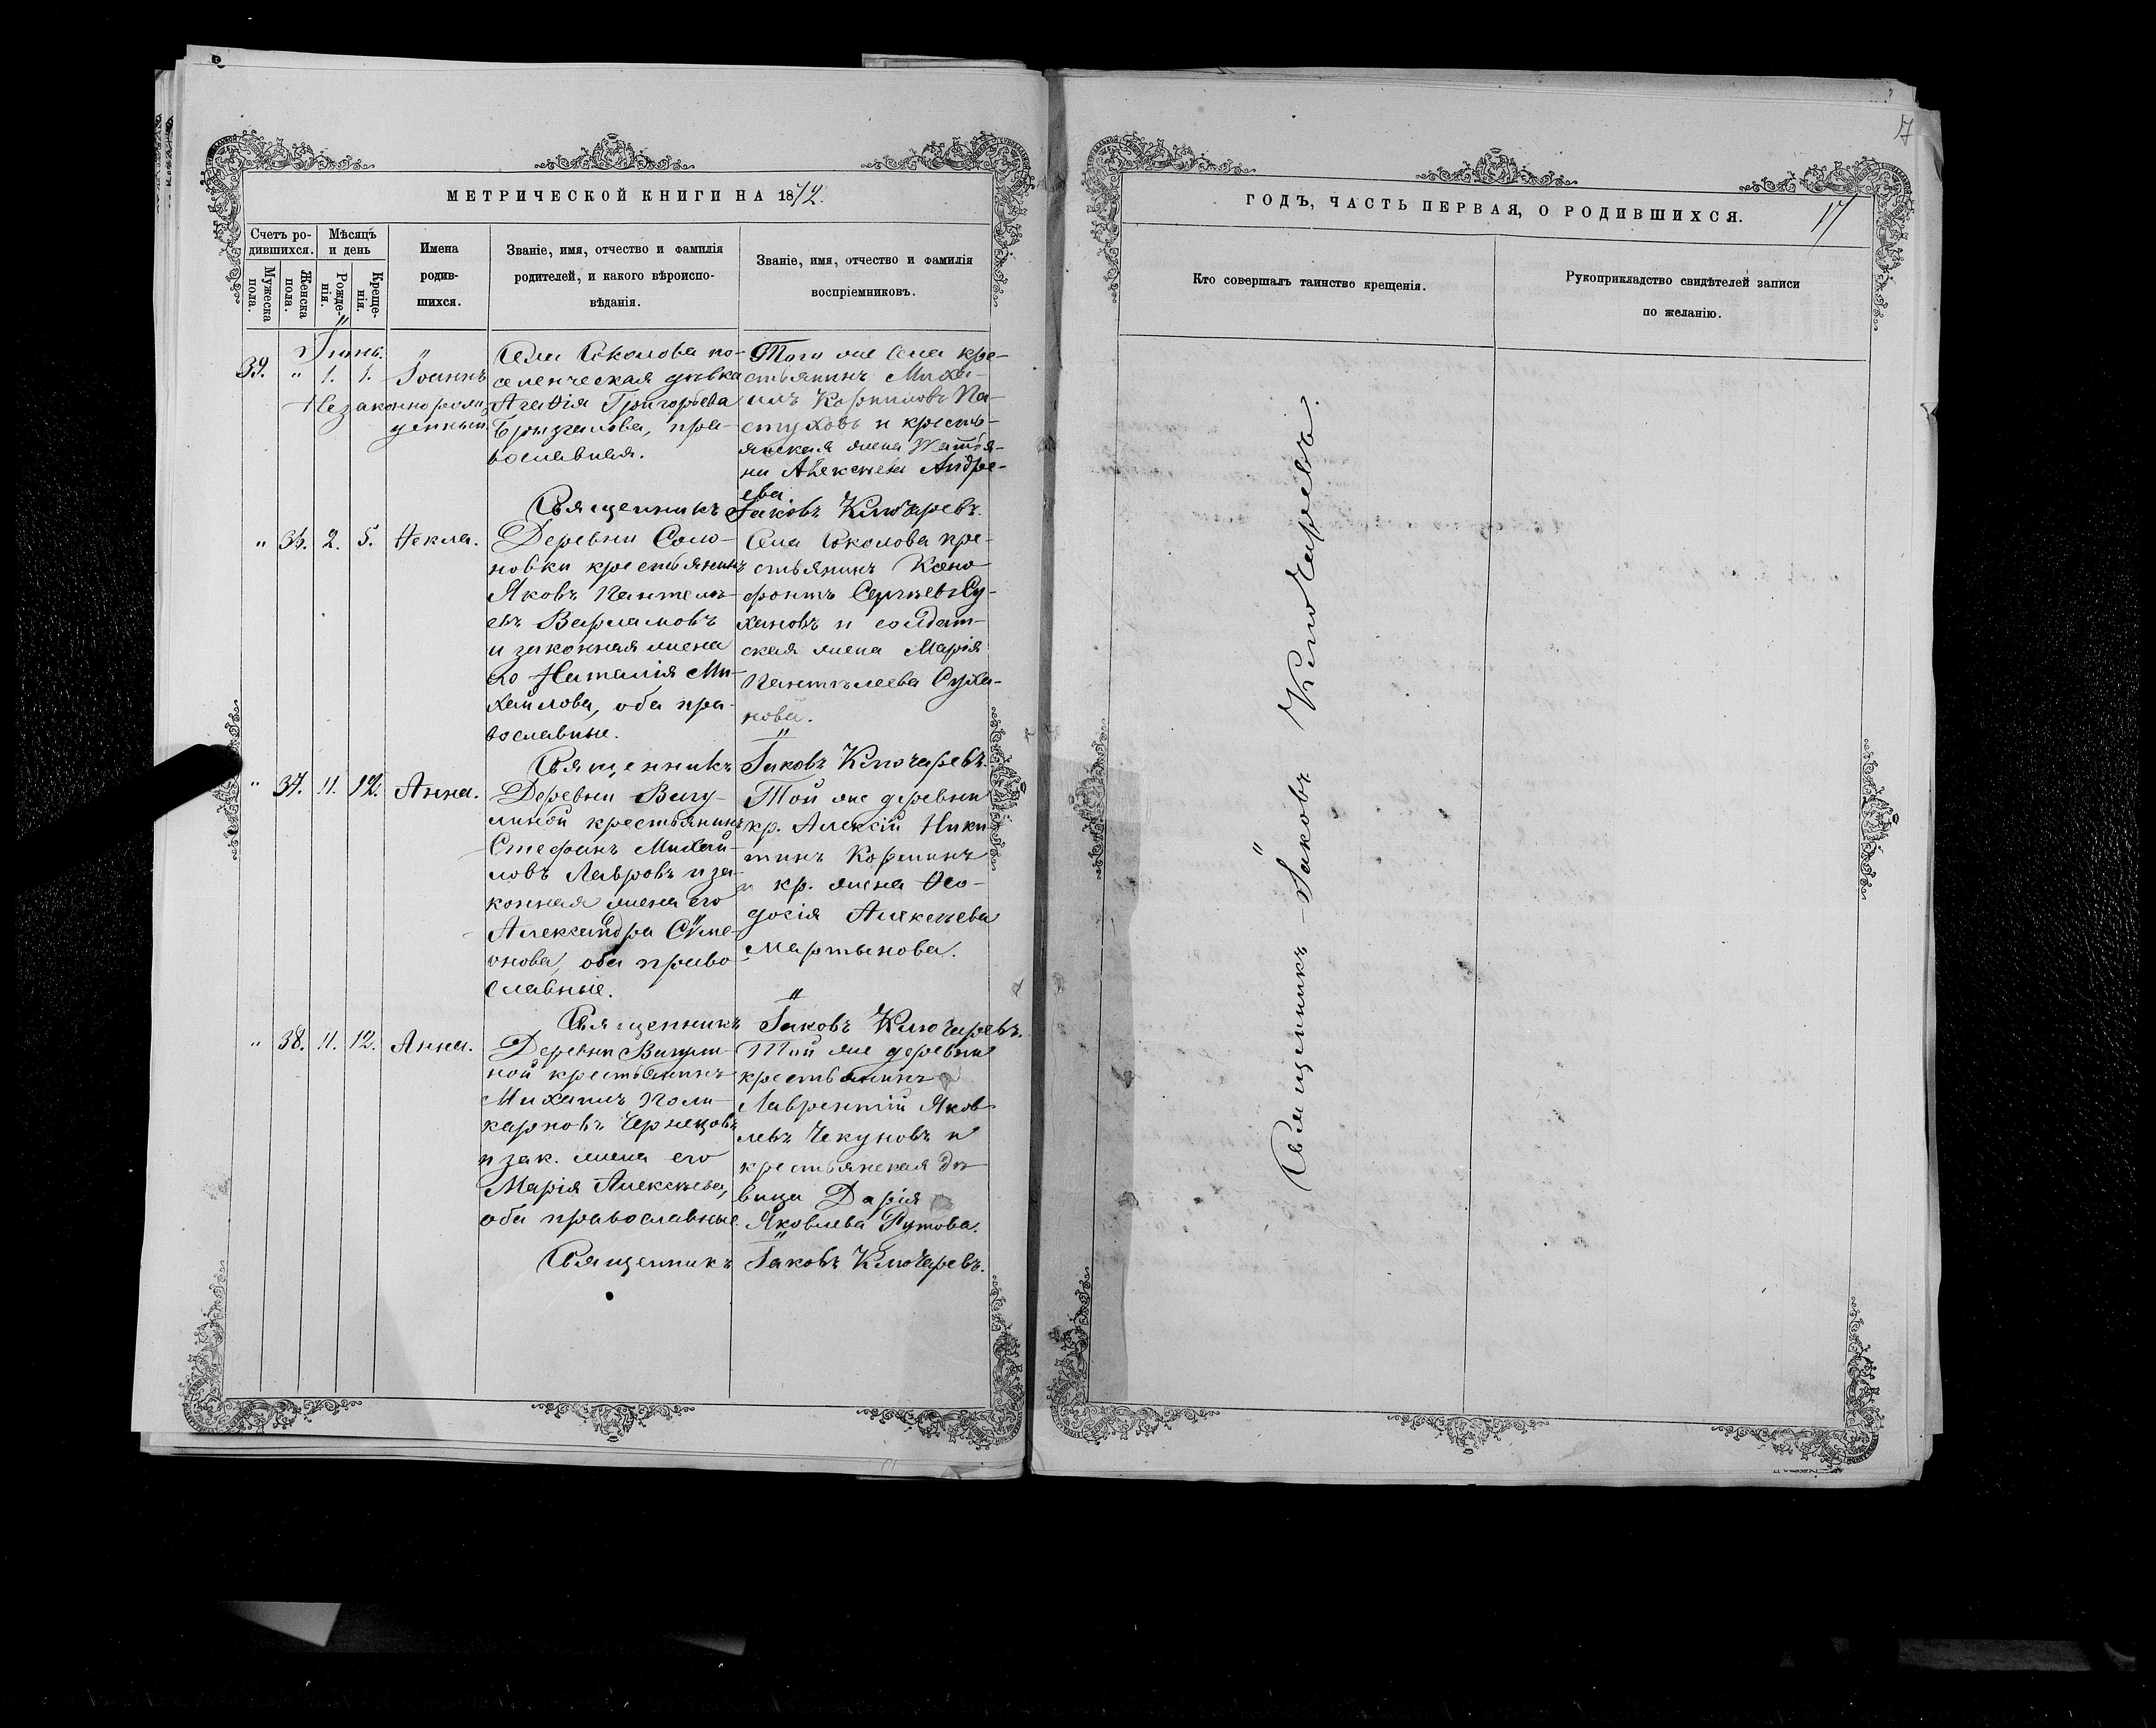 МЕТРИЧЕСКОЙ КНИГИ НА 1872.
Счетъ ро-
дившихся.
Мужеска
пола.
Женска
пола.
Мѣсяцъ
и день
Рожде-
нія.
Креще-
нія.
Имена
родив-
шихся.
Званіе, имя, отчество и фамилія
родителей, и какого вѣроиспо-
вѣданія.
Званіе, имя, отчество и фамилія
воспріемниковъ.
Іюнь.
39. " 1. 1. Іоаннъ
Незаконнорож-
денный.
Села Соколова по-
селенческая дѣвка
Агафія Григорьева
Брызгалова, пра-
вославная.
Того же села кре-
стьянинъ Миха-
илъ Корниловъ Па-
стуховъ и кресть-
янская жена Татья-
на Алексѣева Андре-
ева.
Священникъ Іаковъ Ключаревъ.
" 36. 2. 5. Ѳекла.
Деревни Соло-
новки крестьянинъ
Яковъ Пантелѣ-
евъ Варламовъ
и законная жена
его Наталія Ми-
хайлова, оба пра-
вославные.
Села Соколова кре-
стьянинъ Ксено-
фонтъ Сергѣевъ Су-
хановъ и солдат-
ская жена Марія
Пантелеева Суха-
нова.
Священникъ Іаковъ Ключаревъ.
" 37. 11. 12. Анна.
Деревни Вагу-
линой крестьянинъ
Стефанъ Михай-
ловъ Лавровъ и за-
конная жена его
Александра Симе-
онова, оба право-
славные.
Той же деревни
кр. Алексій Ники-
тинъ Кореминъ
и кр. жена Ѳео-
досія Алексѣева
Мартынова.
Священникъ Іаковъ Ключаревъ.
" 38. 11. 12. Анна.
Деревни Вагули-
ной крестьянинъ
Михаилъ Поли-
карповъ Чернецовъ
и зак. жена его
Марія Алексѣева,
оба православные.
Той же деревни
крестьянинъ
Лаврентій Яков-
левъ Чекуновъ и
крестьянская дѣ-
вица Дарія
Яковлева Рутова.
Священникъ Іаковъ Ключаревъ.
17
ГОДЪ, ЧАСТЬ ПЕРВАЯ, О РОДИВШИХСЯ.
17
Кто совершалъ таинство крещенія.
Рукоприкладство свидѣтелей записи
по желанію.
Священникъ Іаковъ Ключаревъ.